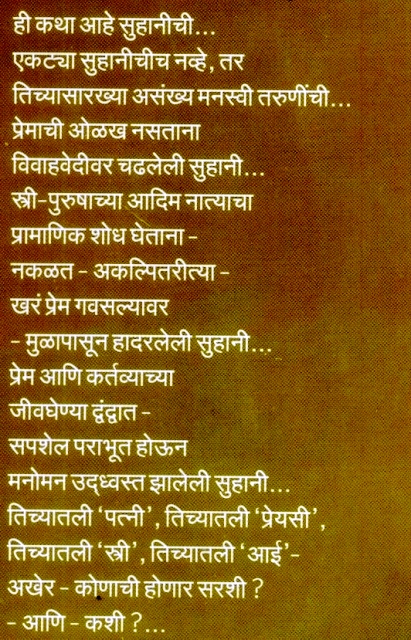 ही कथा आहे सुहानीची...
एकट्या सुहानीचीच नव्हे, तर
तिच्यासारख्या असंख्य मनस्वी तरुणींची...
प्रेमाची ओळख नसताना
विवाहवेदीवर चढलेली सुहानी...
स्त्री-पुरुषाच्या आदिम नात्याचा
प्रामाणिक शोध घेताना -
नकळत - अकल्पितरीत्या -
खरं प्रेम गवसल्यावर
- मुळापासून हादरलेली सुहानी...
प्रेम आणि कर्तव्याच्या
जीवघेण्या द्वंद्वात -
सपशेल पराभूत होऊन
मनोमन उद्ध्वस्त झालेली सुहानी...
तिच्यातली ‘पत्नी’, तिच्यातली ‘प्रेयसी’,
तिच्यातली ‘स्त्री’, तिच्यातली ‘आई’-
अखेर - कोणाची होणार सरशी ?
- आणि - कशी ?...